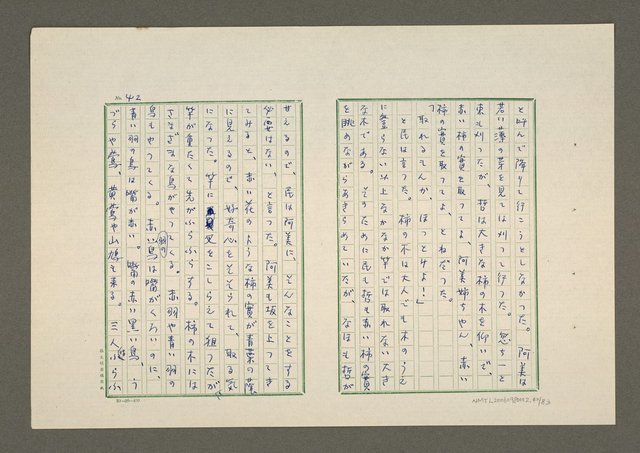 と呼んで降りて行こうとしなかった。阿美は
若い薄の葉を見ては刈って行った。忽ち一と
束も刈ったが、哲は大きな柿の木を仰いで、
赤い柿の實を取ってよ、阿美姉ちやん、赤い
柿の實を取ってよ、とねだつた。
「取れるもんか、ほっとけよ！」
と民は言った。柿の木は大人でも木のうえ
に登らない以上なかなか竿では取れない大き
な木である。そのために民も哲も赤い柿の實
を眺めながらあきらめていたが、なほも哲が
No. 42
甘えるので、民は阿美に、そんなことをする
必要はない、と言った。阿美も坂を上ってき
てみると、赤い花のような柿の實が青葉の蔭
に見えるので、好奇心をそそられて、取る気
になった。竿に叉をこしらえて狙つたが、
竿が重たくて先がふらふらする。柿の木には
さまざまな鳥がやってくる。赤羽や青い羽の
鳥もやってくる。赤い羽の鳥は嘴がくろいのに、
青い羽の鳥は嘴が赤い。嘴の赤い黒い鳥、う
づらや鶯、黄鶯や山鳩も来る。三人
NMTL